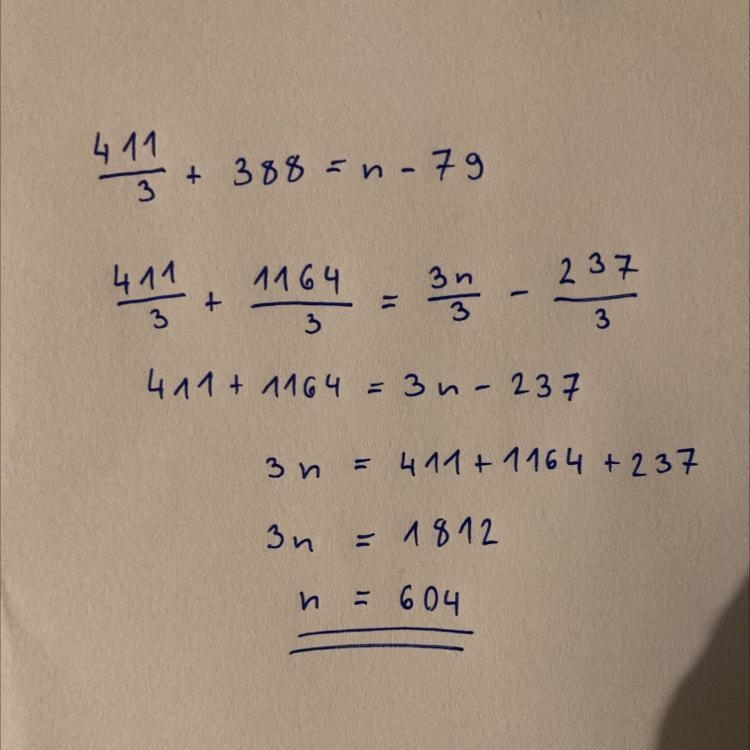 411/3 + 388 = n - 79
411/3 + 1164/3 = 3n/3 - 237/3
411 + 1164 = 3n - 237
3n = 411 + 1164 + 237
3n = 1812
n = 604